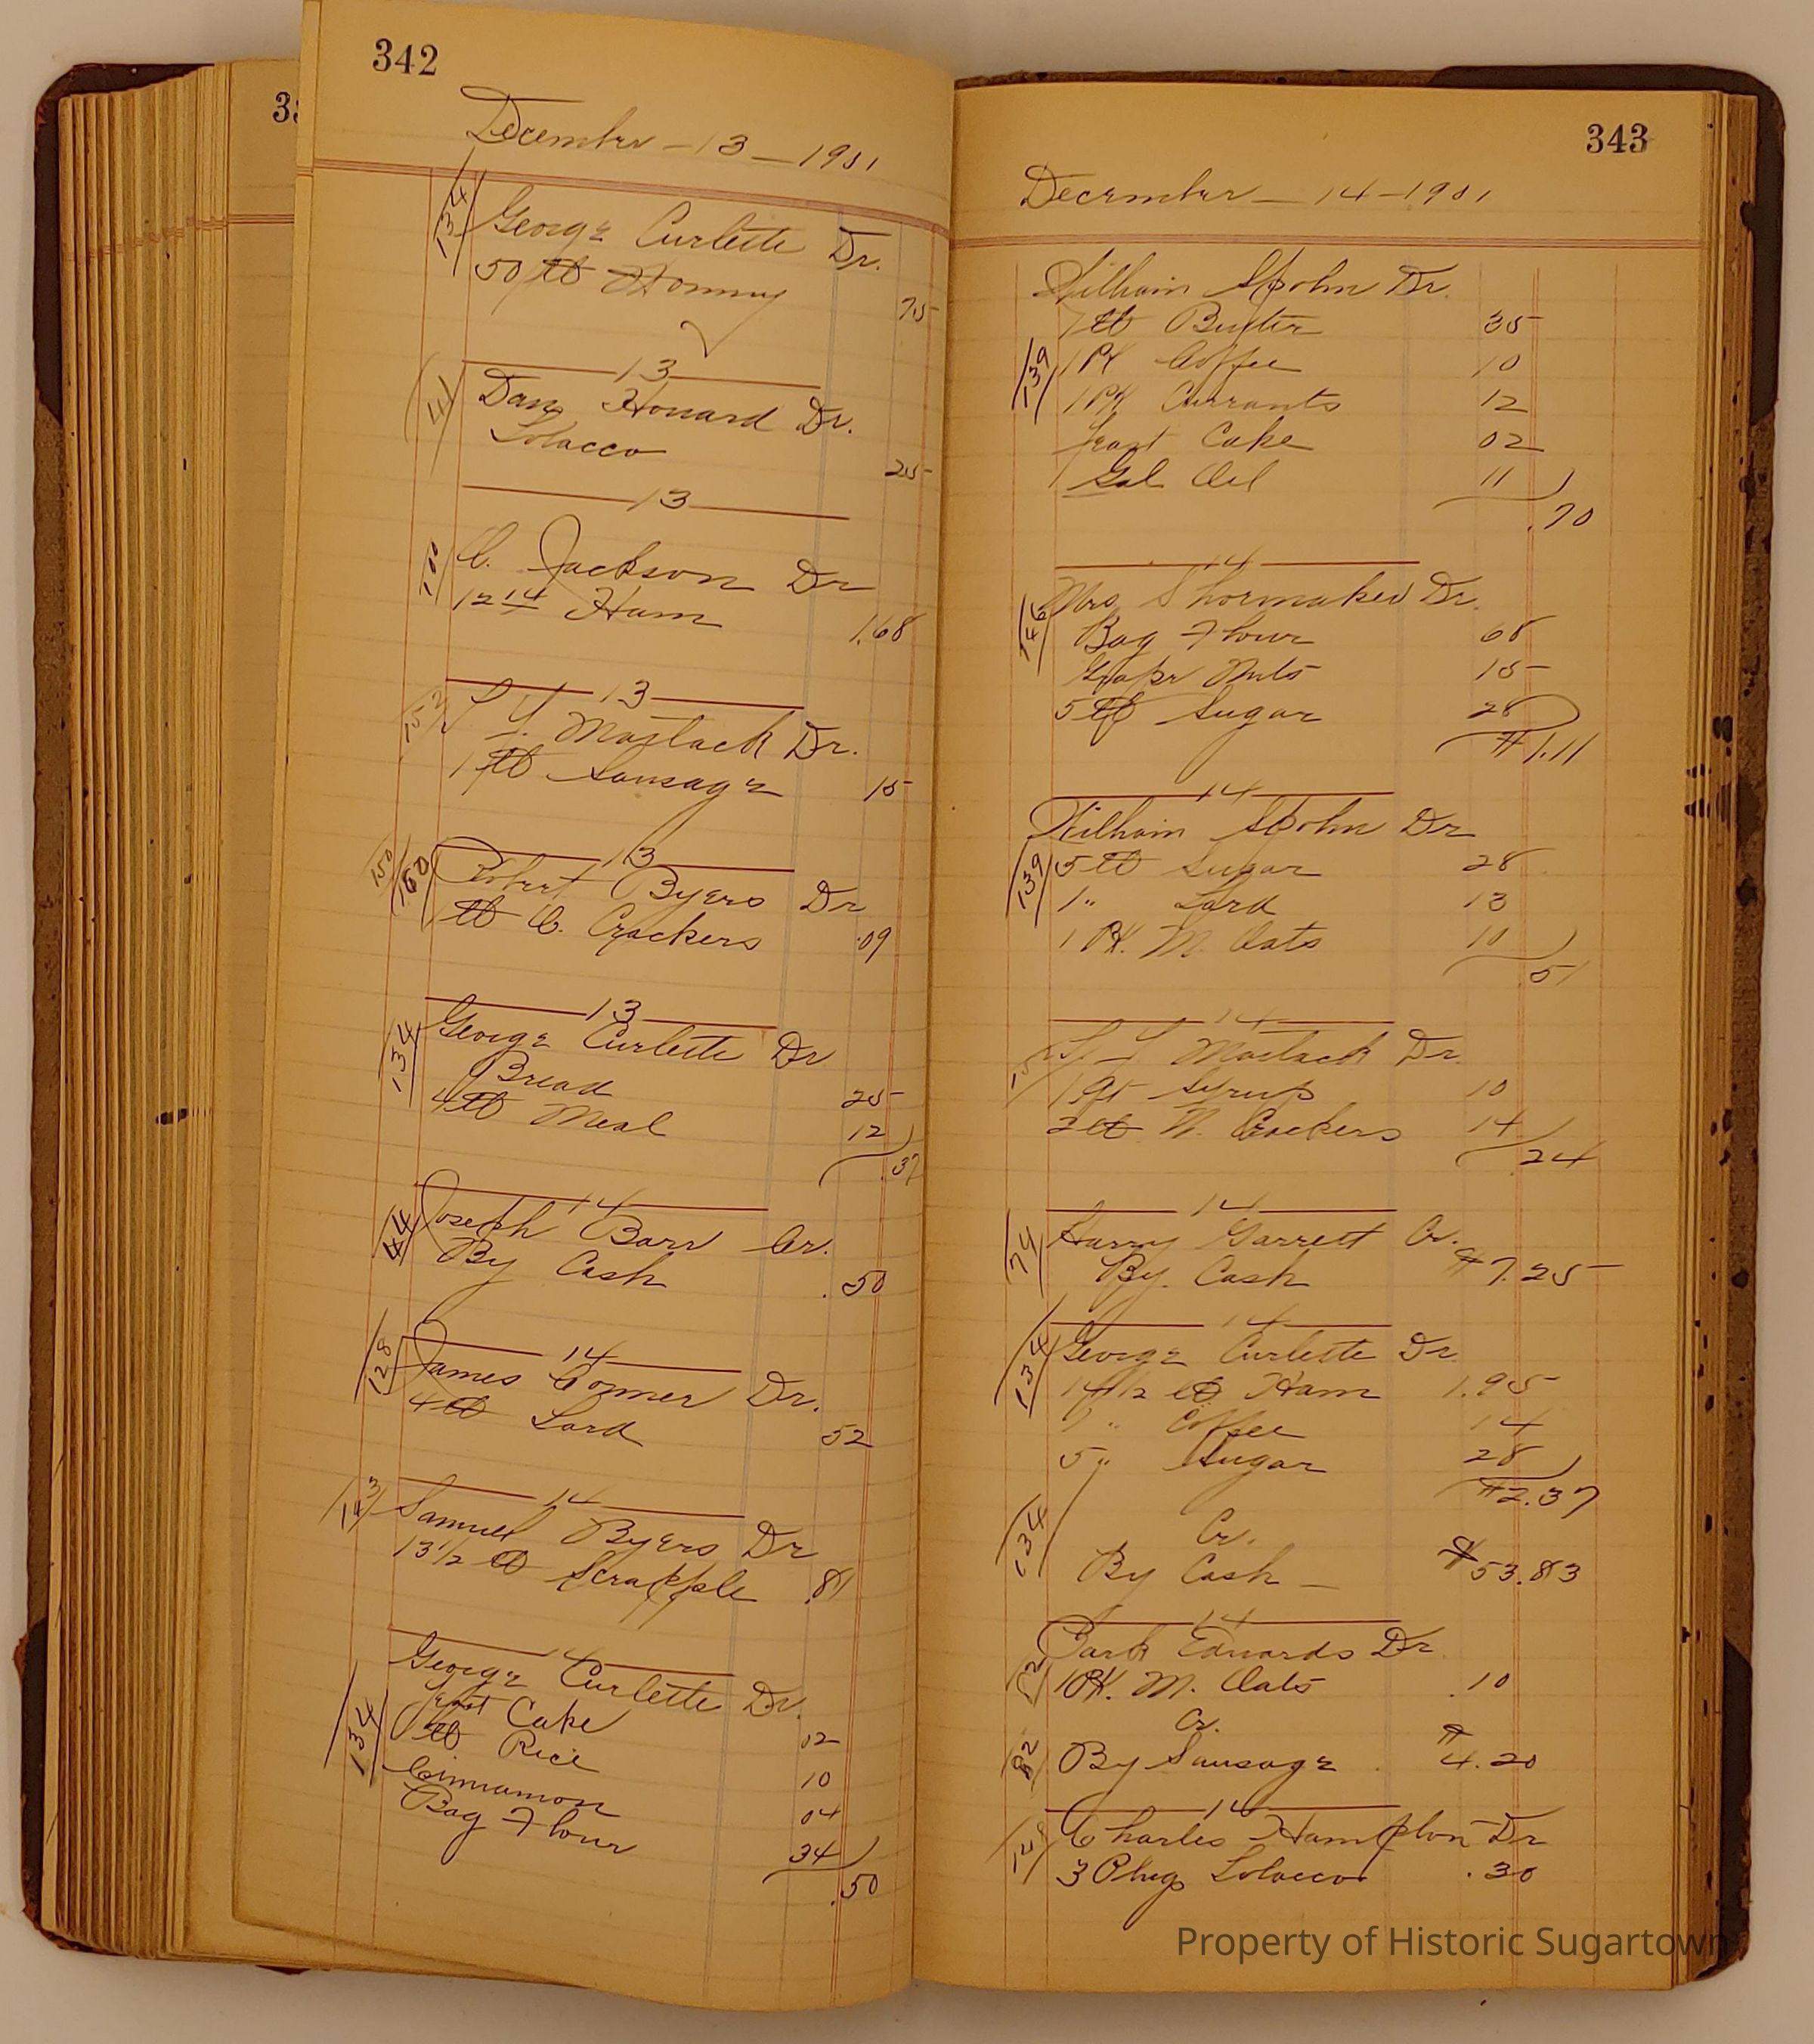 342
December - 13 - 1901
134 George Curlette Dr.
50 lb Hominy 75
13
41 Dan Howard Dr.
Tobacco 25
13
100 C. Jackson Dr
12 14 Ham 1.68
13
152 T. Y. Matlack Dr.
1 lb Sausage 15
13
150 160 Robert Byers Dr
1 lb C. Crackers .09
13
134 George Curlette Dr
Bread 25
4 lb Meal 12
.37
14
44 Joseph Barr Cr.
By Cash .50
14
128 James Comer Dr.
4 lb Lard 52
14
143 Samuel Byers Dr
13 1/2 lb Scrapple .81
14
134 George Curlette Dr.
Yeast Cake 02
1 lb Rice 10
Cinnamon 04
Bag Flour 34
.50
343
December - 14 - 1901
William Spohn Dr.
1 lb Butter 35
139 1 PK Coffee 10
1 PK Currants 12
Yeast Cake 02
1 Gal Oil 11
.70
14
146 Mrs Shoemaker Dr.
Bag Flour 68
Grape Nuts 15
5 lb Sugar 28
$1.11
14
William Spohn Dr
139 5 lb Sugar 28
1 " Lard 13
1 PK. M. Oats 10
.51
14
Matlack Dr
1 qt Syrup 10
2 lb N. Crackers 14
.24
14
74 Harry Garrett Cr.
By. Cash $7.25
14
134 George Curlette Dr
14 1/2 lb Ham 1.95
1 " Coffee 14
5 " Sugar 28
$2.37
134 Cr.
By Cash - $53.83
14
82 Park Edwards Dr
1 PK. M. Oats .10
Cr.
82 By Sausage $4.20
14
Charles Hampton Dr
3 Plugs Tobacco .30
Property of Historic Sugartown